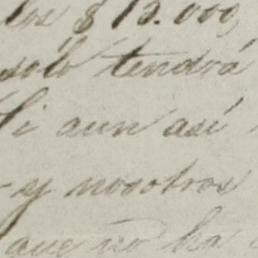 los $15.000,
sólo tendrá
Si aun así
y nosotros
que no ha